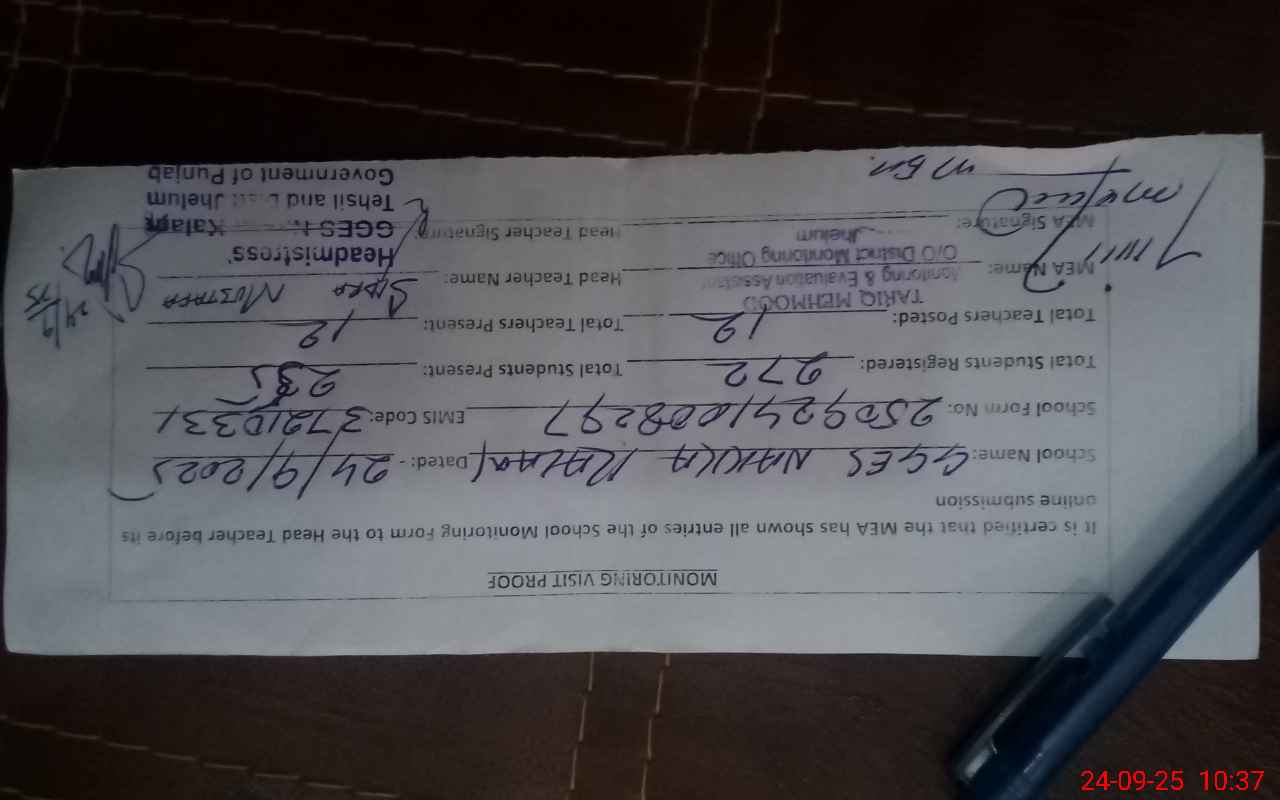 MONITORING VISIT PROOF
It is certified that the MEA has shown all entries of the School Monitoring Form to the Head Teacher before its
online submission
School Name: GGES NAKKA KALAN Dated: - 24/9/2025
School Form No: 2509241008297 EMIS Code: 37210331
Total Students Registered: 272 Total Students Present: 235
Total Teachers Posted: 12 Total Teachers Present: 12
TARIQ MEHMOOD
Monitoring & Evaluation Assistant
O/O District Monitoring Office
Jhelum
MEA Name: Head Teacher Name: MUSTAFA
Headmistress
MEA Signature: Head Teacher Signature:
GGES Kalan
Tehsil and Distt Jhelum
Government of Punjab
24/9
24-09-25 10:37